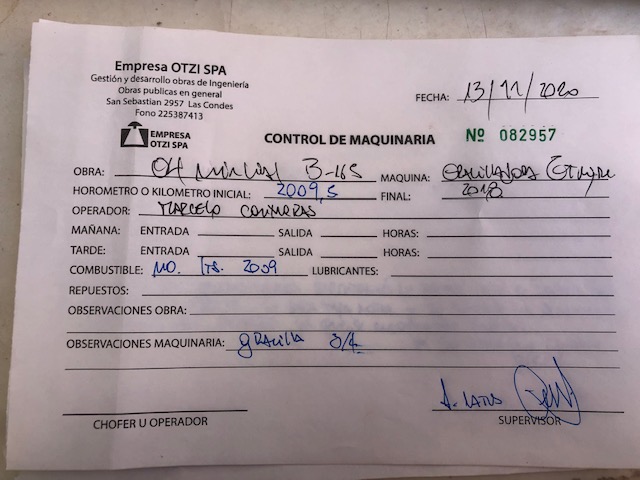 Empresa OTZI SPA
Gestión y desarrollo obras de Ingeniería
Obras publicas en general
San Sebastian 2957 Las Condes
Fono 225387413
FECHA: 13/11/2020
EMPRESA
OTZI SPA
CONTROL DE MAQUINARIA Nº 082957
OBRA: B-165 MAQUINA:
HOROMETRO O KILOMETRO INICIAL: 2009,5 FINAL: 2018
OPERADOR: MARCELO CONTRERAS
MAÑANA: ENTRADA SALIDA HORAS:
TARDE: ENTRADA SALIDA HORAS:
COMBUSTIBLE: 110. Lts. 2009 LUBRICANTES:
REPUESTOS:
OBSERVACIONES OBRA:
OBSERVACIONES MAQUINARIA: gravilla 3/4
CHOFER U OPERADOR
SUPERVISOR